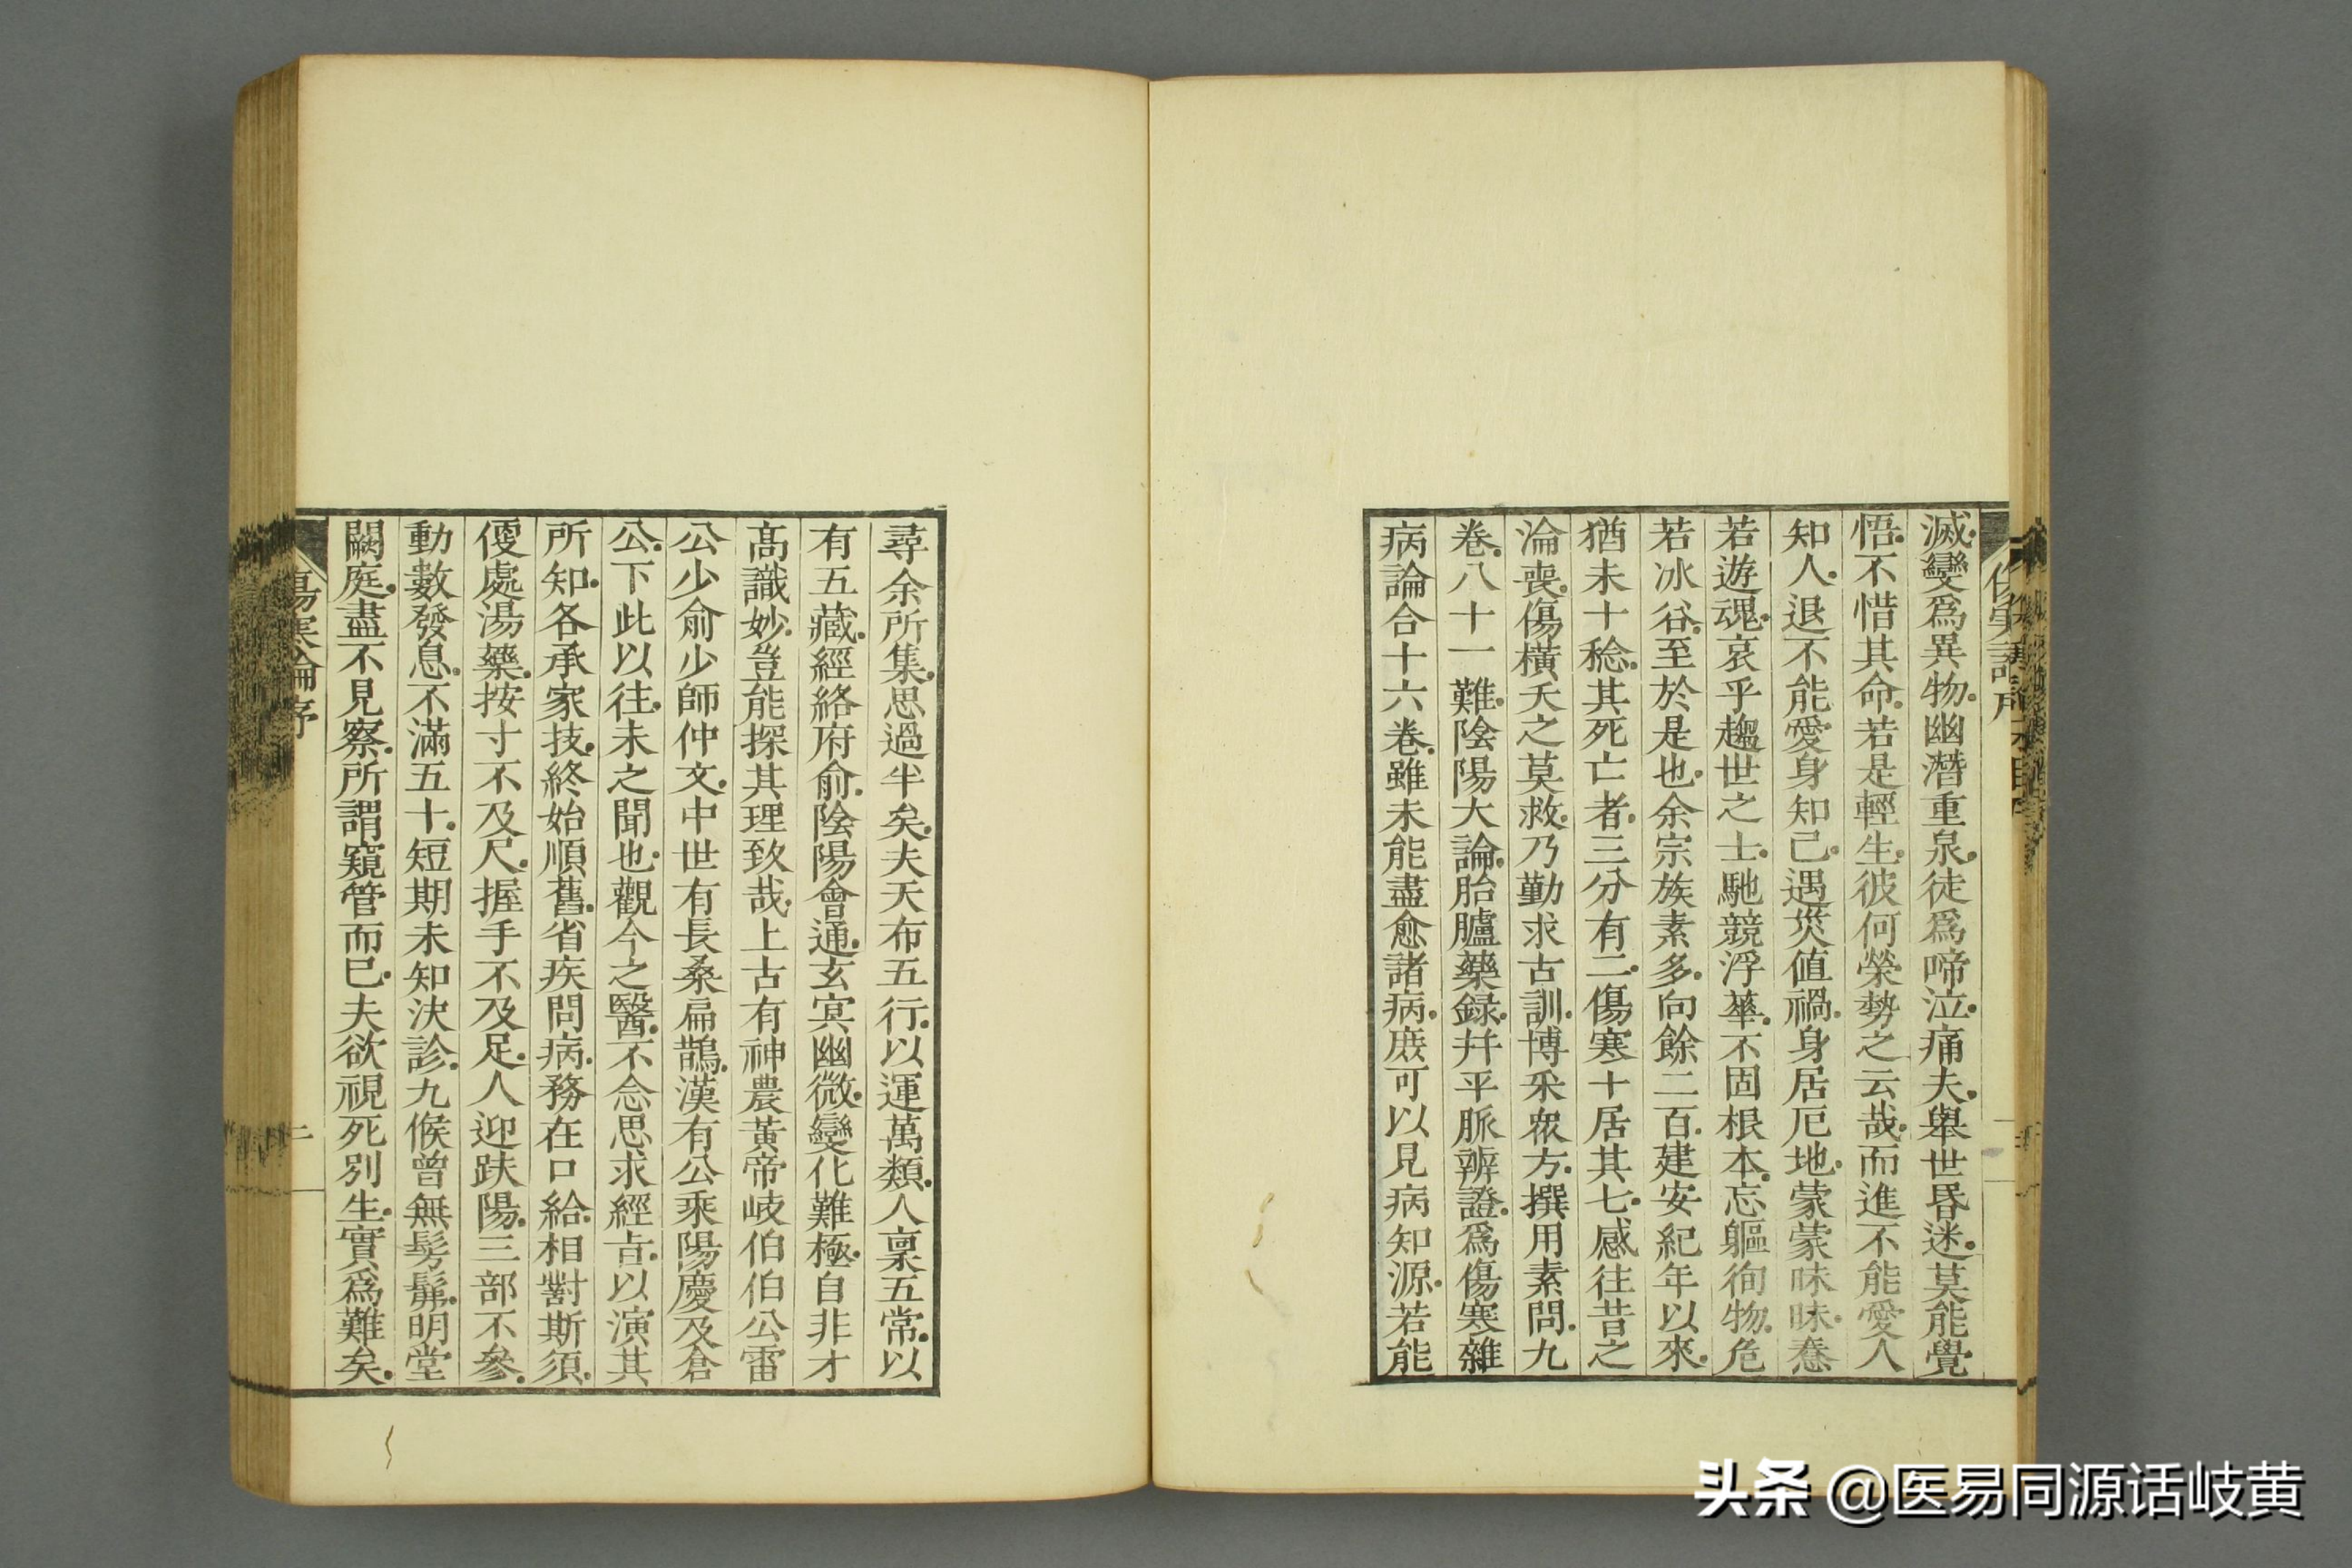 滅變爲異物幽潛重泉徒爲啼泣痛夫舉世昏迷莫能覺
悟不惜其命若是輕生彼何榮勢之云哉而進不能愛人
知人退不能愛身知己遇災值禍身居厄地蒙蒙昧昧惷
若遊魂哀乎趨世之士馳競浮華不固根本忘軀徇物危
若冰谷至於是也余宗族素多向餘二百建安紀年以來
猶未十稔其死亡者三分有二傷寒十居其七感往昔之
淪喪傷橫夭之莫救乃勤求古訓博采衆方撰用素問九
卷八十一難陰陽大論胎臚藥錄幷平脈辨證爲傷寒雜
病論合十六卷雖未能盡愈諸病庶可以見病知源若能
尋余所集思過半矣夫天布五行以運萬類人稟五常以
有五藏經絡府俞陰陽會通玄冥幽微變化難極自非才
高識妙豈能探其理致哉上古有神農黃帝岐伯伯公雷
公少俞少師仲文中世有長桑扁鵲漢有公乘陽慶及倉
公下此以往未之聞也觀今之醫不念思求經旨以演其
所知各承家技終始順舊省疾問病務在口給相對斯須
便處湯藥按寸不及尺握手不及足人迎趺陽三部不參
動數發息不滿五十短期未知決診九候曾無髣髴明堂
闕庭盡不見察所謂窺管而已夫欲視死別生實爲難矣
傷寒論序
二
头条 @医易同源话岐黄